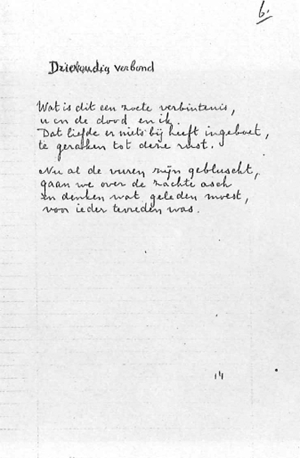 6.
Drievoudig verbond
Wat is dit een zoete verbintenis,
u en de dood en ik.
Dat liefde er niets bij heeft ingeboet,
te geraken tot deze rust.
Nu al de vuren zijn gebluscht,
gaan we over de zachte asch
en denken wat geleden moest,
voor ieder tevreden was.